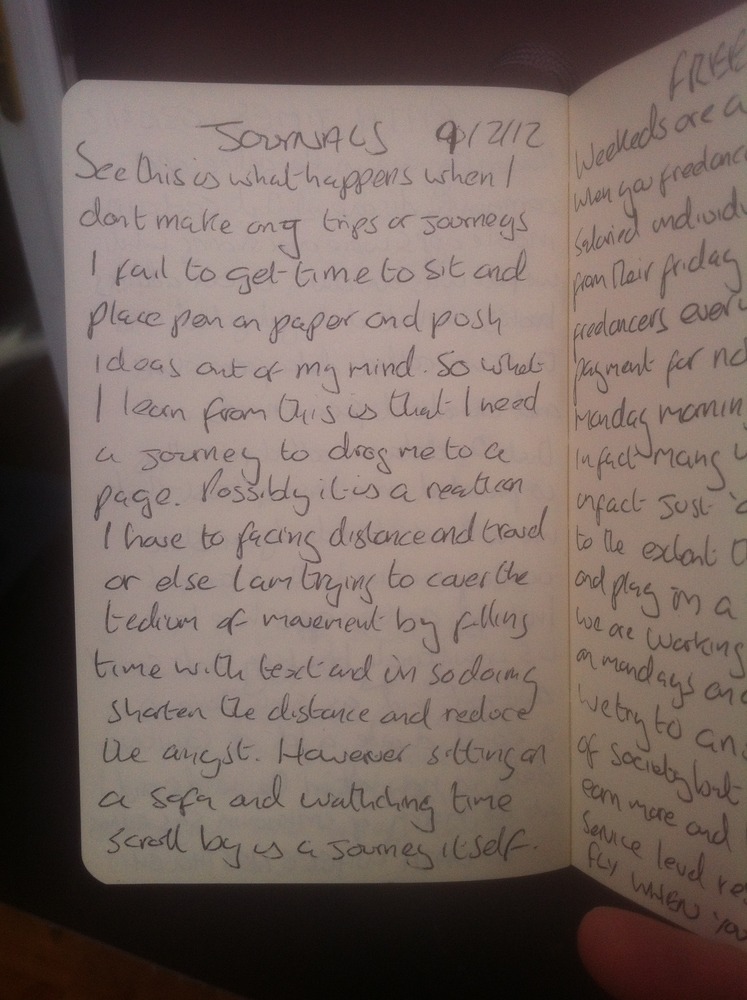 JOURNALS 9/2/12
See this is what happens when I
dont make any trips or journeys
I fail to get time to sit and
place pen on paper and posh
ideas out of my mind. So what
I learn from this is that I need
a journey to drag me to a
page. Possibly it is a reaction
I have to facing distance and travel
or else I am trying to cover the
tedium of movement by filling
time with text and in so doing
shorten the distance and reduce
the angst. However sitting on
a sofa and wathching time
scroll by is a journey itself.
FREE
Weekeds are a
when you freelance
Salaried individu
from their friday
freelancers every
payment for no
Monday mornin
Infact many
infact just
to the extent
and play in a
we are working
on mondays and
We try to an
of society but
earn more and
Service level re
fly WHEN YOU